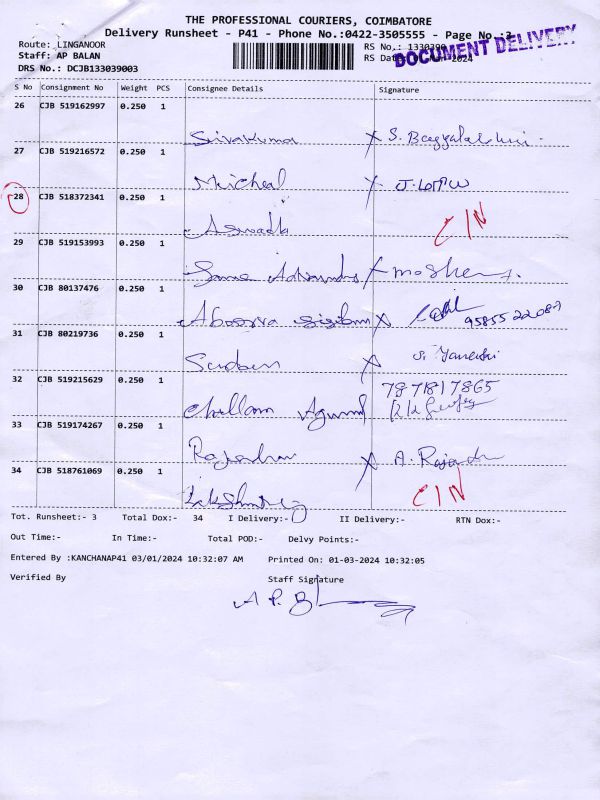 THE PROFESSIONAL COURIERS, COIMBATORE
Delivery Runsheet - P41 - Phone No.:0422-3505555 - Page No.:3
Route: LINGANOOR
RS No.: 1330390
Staff: AP BALAN
RS Date: 2024
DOCUMENT DELIVERY
DRS No.: DCJB133039003
S No Consignment No Weight PCS Consignee Details Signature
26 CJB 519162997 0.250 1
Sivakumar X S.
27 CJB 519216572 0.250 1
Micheal X J.
28 CJB 518372341 0.250 1
CIN
29 CJB 519153993 0.250 1
30 CJB 80137476 0.250 1
X 95855 22087
31 CJB 80219736 0.250 1
X
32 CJB 519215629 0.250 1
7971817865
Chellam
33 CJB 519174267 0.250 1
X A.
34 CJB 518761069 0.250 1
CIN
Tot. Runsheet:- 3 Total Dox:- 34 I Delivery:- II Delivery:- RTN Dox:-
Out Time:- In Time:- Total POD:- Delvy Points:-
Entered By :KANCHANAP41 03/01/2024 10:32:07 AM Printed On: 01-03-2024 10:32:05
Verified By Staff Signature
A P. B